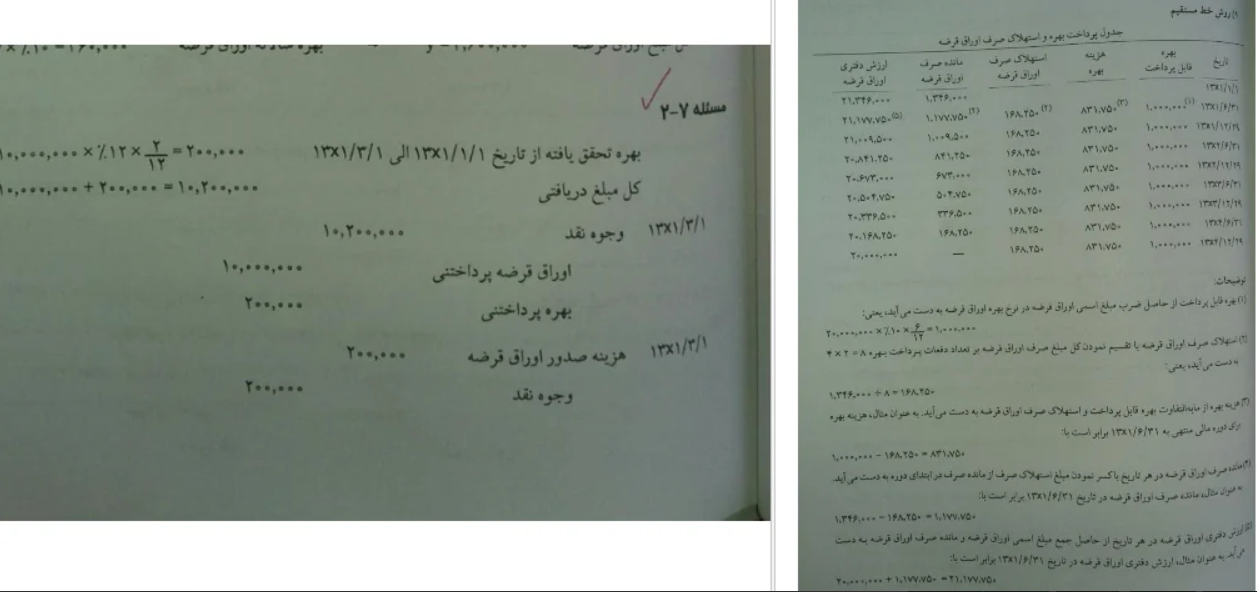 مسئله ۷-۲
بهره تحقق یافته از تاریخ ۱۳X۱/۱/۱ الی ۱۳X۱/۳/۱ ۱۰,۰۰۰,۰۰۰ × ٪۱۲ × ۲/۱۲ = ۲۰۰,۰۰۰
کل مبلغ دریافتی ۱۰,۰۰۰,۰۰۰ + ۲۰۰,۰۰۰ = ۱۰,۲۰۰,۰۰۰
۱۳X۱/۳/۱ وجوه نقد ۱۰,۲۰۰,۰۰۰
اوراق قرضه پرداختنی ۱۰,۰۰۰,۰۰۰
بهره پرداختنی ۲۰۰,۰۰۰
۱۳X۱/۳/۱ هزینه صدور اوراق قرضه ۲۰۰,۰۰۰
وجوه نقد ۲۰۰,۰۰۰
۱) روش خط مستقیم
جدول پرداخت بهره و استهلاک صرف اوراق قرضه
تاریخ بهره قابل پرداخت هزینه بهره استهلاک صرف اوراق قرضه مانده صرف اوراق قرضه ارزش دفتری اوراق قرضه
۱۳X۱/۱/۱ ۱,۳۴۶,۰۰۰ ۲۱,۳۴۶,۰۰۰
۱۳X۱/۶/۳۱ ۱,۰۰۰,۰۰۰(۱) ۸۳۱,۷۵۰(۳) ۱۶۸,۲۵۰(۲) ۱,۱۷۷,۷۵۰(۴) ۲۱,۱۷۷,۷۵۰(۵)
۱۳X۱/۱۲/۲۹ ۱,۰۰۰,۰۰۰ ۸۳۱,۷۵۰ ۱۶۸,۲۵۰ ۱,۰۰۹,۵۰۰ ۲۱,۰۰۹,۵۰۰
۱۳X۲/۶/۳۱ ۱,۰۰۰,۰۰۰ ۸۳۱,۷۵۰ ۱۶۸,۲۵۰ ۸۴۱,۲۵۰ ۲۰,۸۴۱,۲۵۰
۱۳X۲/۱۲/۲۹ ۱,۰۰۰,۰۰۰ ۸۳۱,۷۵۰ ۱۶۸,۲۵۰ ۶۷۳,۰۰۰ ۲۰,۶۷۳,۰۰۰
۱۳X۳/۶/۳۱ ۱,۰۰۰,۰۰۰ ۸۳۱,۷۵۰ ۱۶۸,۲۵۰ ۵۰۴,۷۵۰ ۲۰,۵۰۴,۷۵۰
۱۳X۳/۱۲/۲۹ ۱,۰۰۰,۰۰۰ ۸۳۱,۷۵۰ ۱۶۸,۲۵۰ ۳۳۶,۵۰۰ ۲۰,۳۳۶,۵۰۰
۱۳X۴/۶/۳۱ ۱,۰۰۰,۰۰۰ ۸۳۱,۷۵۰ ۱۶۸,۲۵۰ ۱۶۸,۲۵۰ ۲۰,۱۶۸,۲۵۰
۱۳X۴/۱۲/۲۹ ۱,۰۰۰,۰۰۰ ۸۳۱,۷۵۰ ۱۶۸,۲۵۰ — ۲۰,۰۰۰,۰۰۰
توضیحات:
(۱) بهره قابل پرداخت از حاصل ضرب مبلغ اسمی اوراق قرضه در نرخ بهره اوراق قرضه به دست می‌آید، یعنی:
۲۰,۰۰۰,۰۰۰ × ٪۱۰ × ۶/۱۲ = ۱,۰۰۰,۰۰۰
(۲) استهلاک صرف اوراق قرضه با تقسیم نمودن کل مبلغ صرف اوراق قرضه بر تعداد دفعات پرداخت بهره ۸ = ۲ × ۴
به دست می‌آید، یعنی:
۱,۳۴۶,۰۰۰ ÷ ۸ = ۱۶۸,۲۵۰
(۳) هزینه بهره از مابه‌التفاوت بهره قابل پرداخت و استهلاک صرف اوراق قرضه به دست می‌آید. به عنوان مثال، هزینه بهره
برای دوره مالی منتهی به ۱۳X۱/۶/۳۱ برابر است با:
۱,۰۰۰,۰۰۰ − ۱۶۸,۲۵۰ = ۸۳۱,۷۵۰
(۴) مانده صرف اوراق قرضه در هر تاریخ با کسر نمودن مبلغ استهلاک صرف از مانده صرف در ابتدای دوره به دست می‌آید.
به عنوان مثال، مانده صرف اوراق قرضه در تاریخ ۱۳X۱/۶/۳۱ برابر است با:
۱,۳۴۶,۰۰۰ − ۱۶۸,۲۵۰ = ۱,۱۷۷,۷۵۰
(۵) ارزش دفتری اوراق قرضه در هر تاریخ از حاصل جمع مبلغ اسمی اوراق قرضه و مانده صرف اوراق قرضه به دست
می‌آید. به عنوان مثال، ارزش دفتری اوراق قرضه در تاریخ ۱۳X۱/۶/۳۱ برابر است با:
۲۰,۰۰۰,۰۰۰ + ۱,۱۷۷,۷۵۰ = ۲۱,۱۷۷,۷۵۰